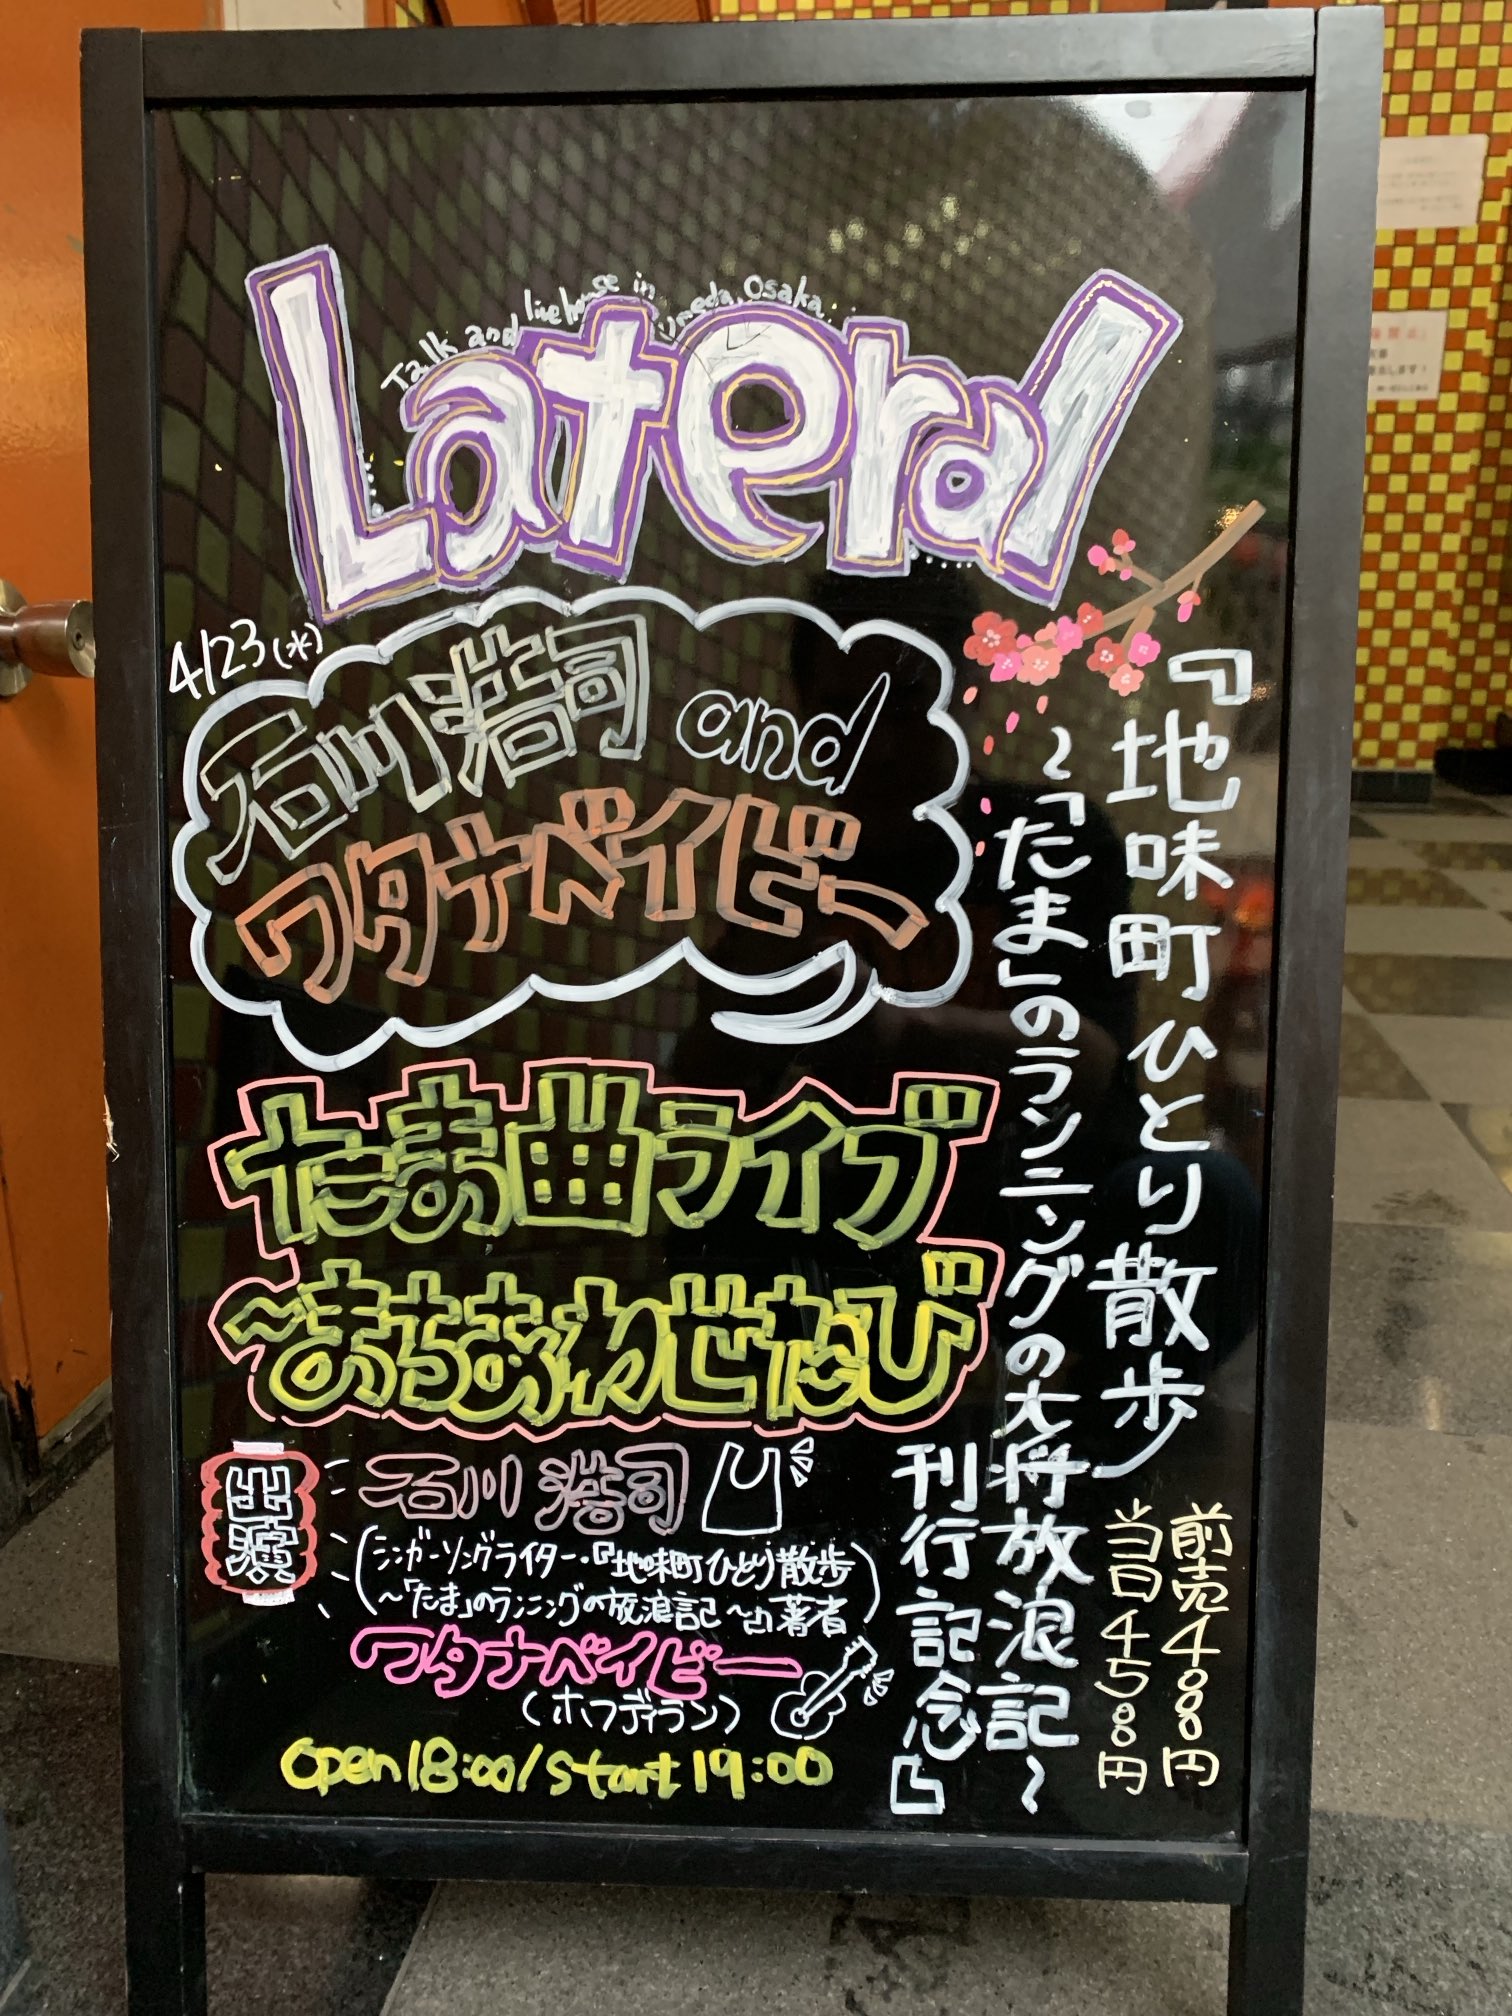 Talk and live house in Umeda, Osaka.
Lateral
4/23(水)
石川浩司 and
ワタナベイビー
『地味町ひとり散歩
～「たま」のランニングの大将放浪記～
刊行記念』
たま曲ライブ
～まちあわせたび
前売4000円
当日4500円
出演
石川浩司
(シンガーソングライター・『地味町ひとり散歩
～「たま」のランニングの放浪記～』著者)
ワタナベイビー
(ホフディラン)
open18:00/start19:00